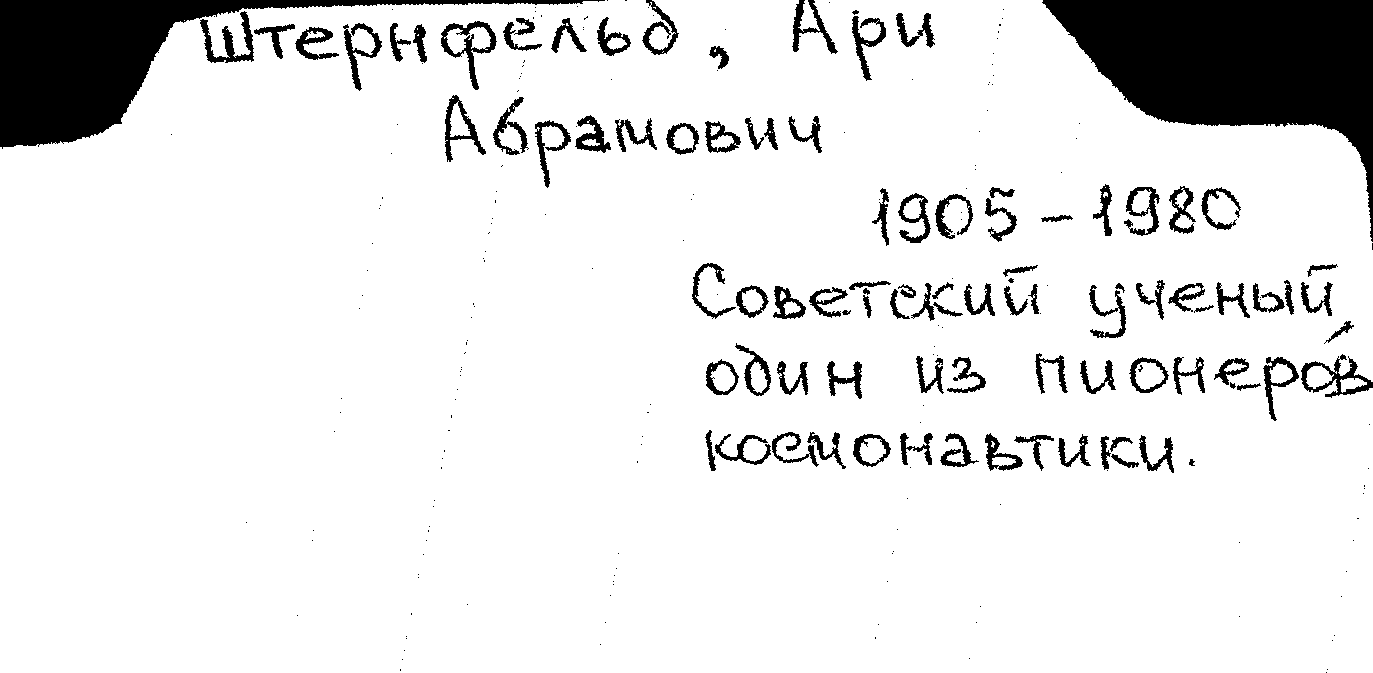 Штернфельд, Ари
Абрамович
1905-1980
Советский ученый
один из пионеров
космонавтики.